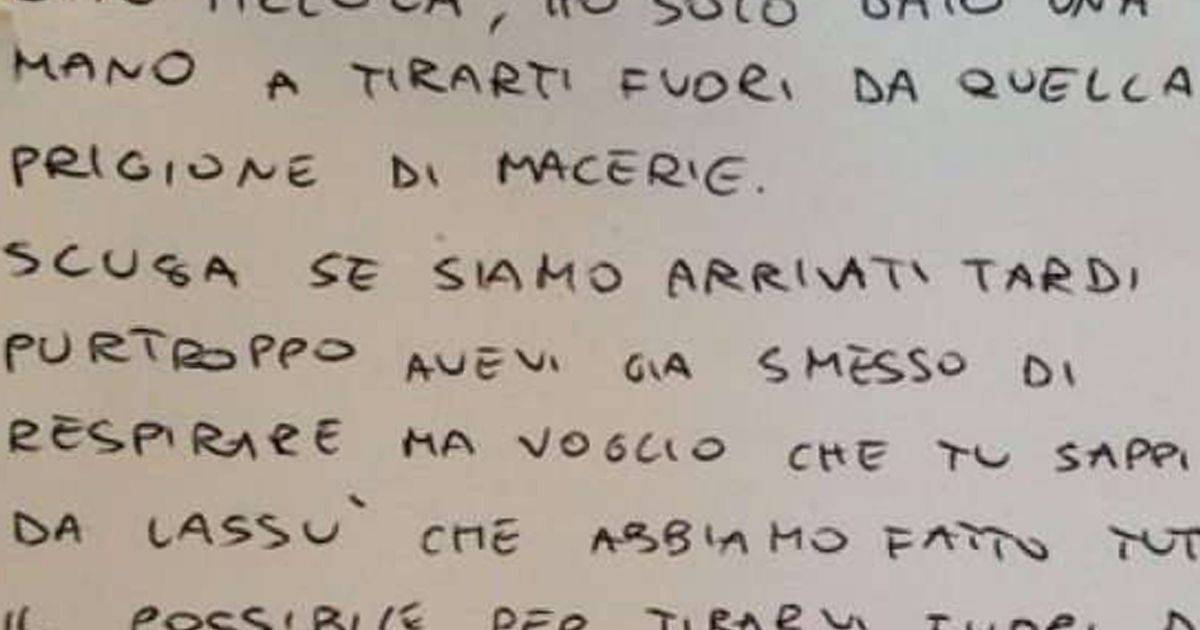 PICCOLA, HO SOLO DATO UNA
MANO A TIRARTI FUORI DA QUELLA
PRIGIONE DI MACERIE.
SCUSA SE SIAMO ARRIVATI TARDI
PURTROPPO AVEVI GIA SMESSO DI
RESPIRARE MA VOGLIO CHE TU SAPPI
DA LASSU' CHE ABBIAMO FATTO TUT
IL POSSIBILE PER TIRARVI FUORI D